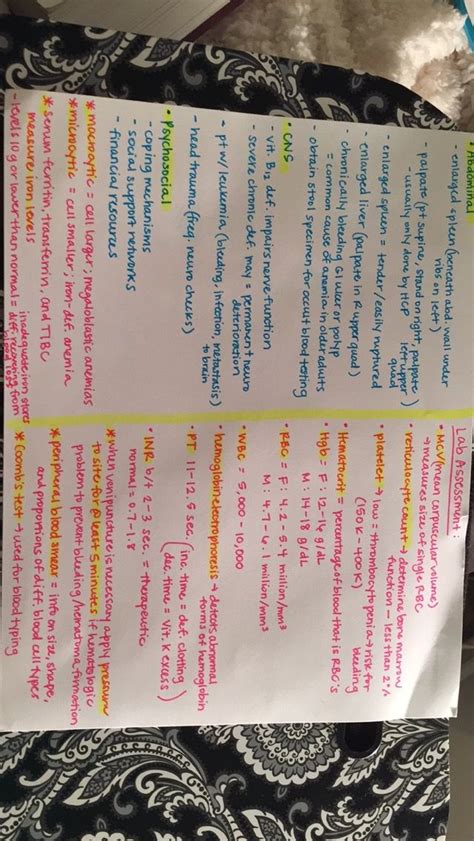 • Abdominal
- enlarged spleen (beneath abd. wall under
ribs on left)
- palpate (pt supine, stand on right, palpate
left upper
quad)
- usually only done by HCP
- enlarged spleen = tender/easily ruptured
- enlarged liver (palpate in R upper quad)
- chronically bleeding GI ulcer or polyp
= common cause of anemia in older adults
- obtain stool specimen for occult blood testing
• CNS
- vit. B12 def. impairs nerve function
- severe chronic def. may = permanent neuro
deterioration
• pt w/ leukemia (bleeding, infection, metastasis)
to brain
- head trauma (freq. neuro checks)
• Psychosocial
- coping mechanisms
- social support networks
- financial resources
* macrocytic = cell larger; megaloblastic anemias
* microcytic = cell smaller; iron-def. anemia
* serum ferritin, transferrin, and TIBC
measure iron levels
- levels 10 g or lower than normal = diff. recovering from
inadequate iron stores
blood loss
Lab Assessment:
• MCV (mean corpuscular volume)
→ measures size of single RBC
• reticulocyte count → determine bone marrow
function - less than 2%
• platelet → low = thrombocytopenia → risk for
bleeding
(150K-400K)
• Hematocrit = percentage of blood that is RBC's
• Hgb = F: 12-16 g/dL
M: 14-18 g/dL
• RBC = F: 4.2-5.4 million/mm³
M: 4.7-6.1 million/mm³
• WBC = 5,000-10,000
• hemoglobin electrophoresis → detects abnormal
forms of hemoglobin
• PT 11-12.5 sec. (inc. time = def. clotting
dec. time = vit. K excess)
• INR b/t 2-3 sec. = therapeutic
normal = 0.7-1.8
* when venipuncture is necessary apply pressure
to site for @ least 5 minutes if hematologic
problem to prevent bleeding/hematoma formation
* peripheral blood smear = info on size, shape,
and proportions of diff. blood cell types
* Coomb's test → used for blood typing